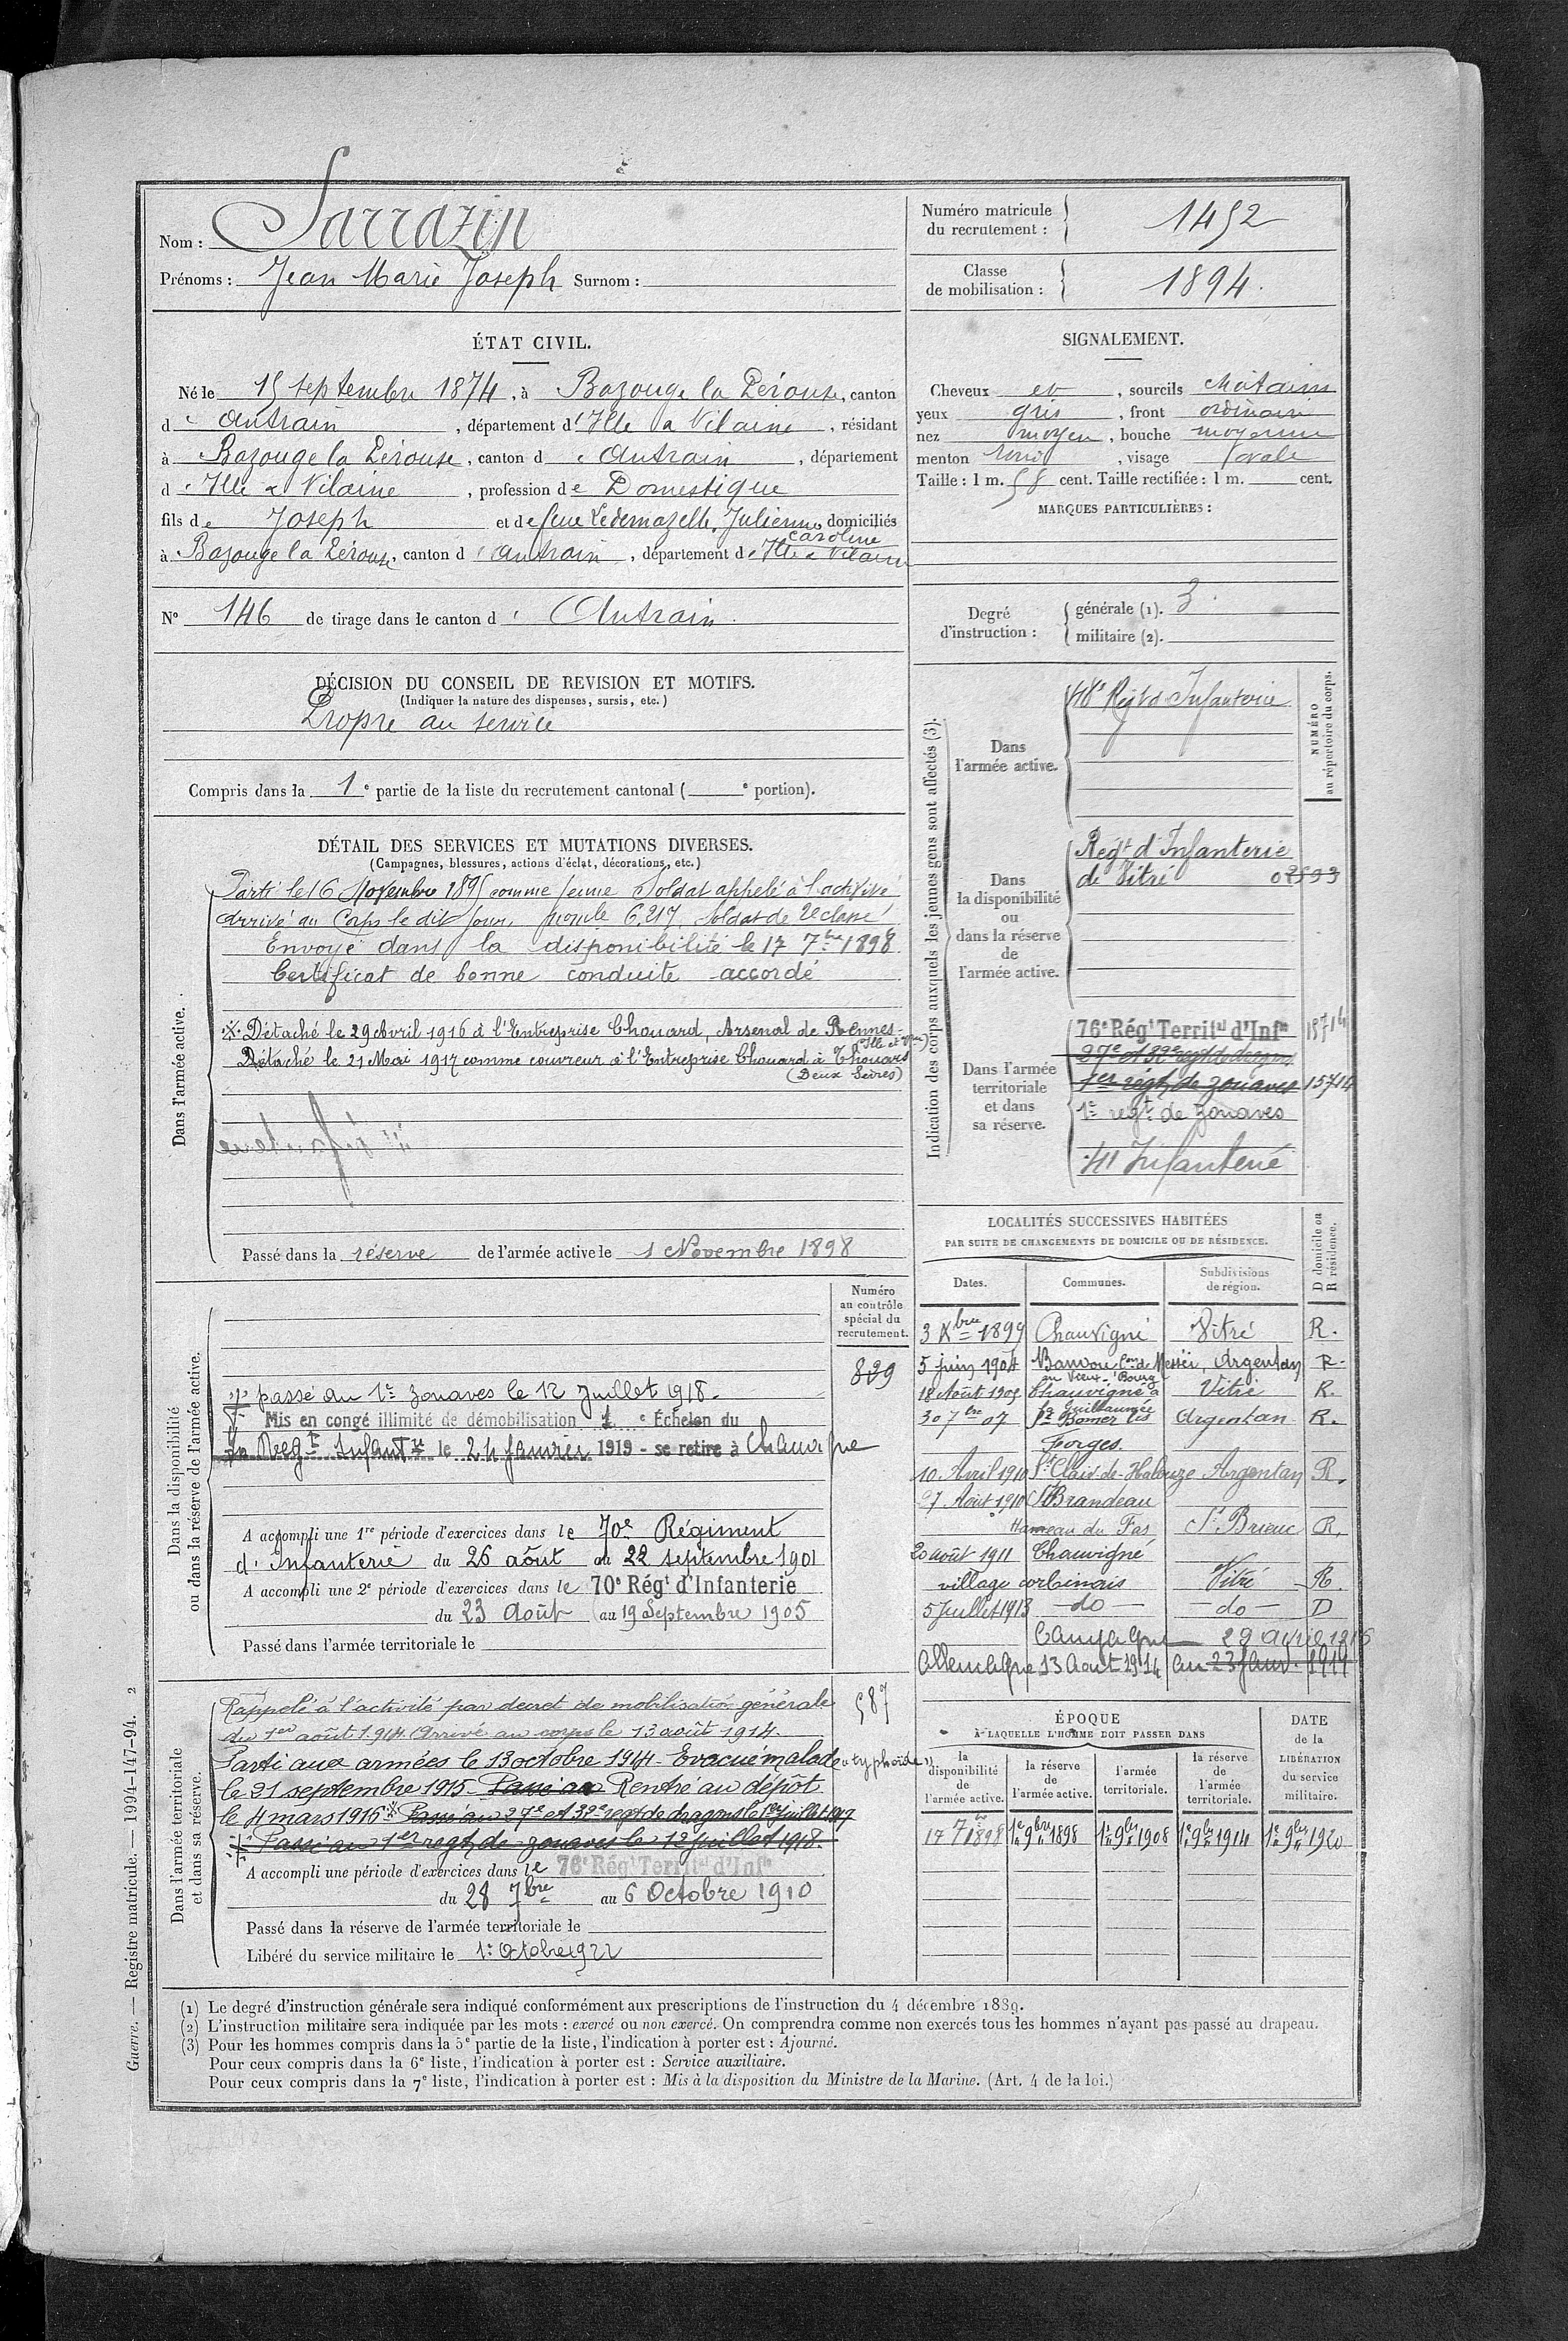 Nom : Sarrazin
Prénoms : Jean Marie Joseph Surnom :
Numéro matricule
du recrutement : 1452
Classe
de mobilisation : 1894.
ÉTAT CIVIL.
Né le 15 septembre 1874, à Bazouge la Pérouse, canton
d'Antrain, département d'Ille & Vilaine, résidant
à Bazouge la Pérouse, canton d'Antrain, département
d'Ille & Vilaine, profession de Domestique
fils de Joseph et de feue Ledemazelle, Julienne domiciliés
Caroline
à Bazouge la Pérouse, canton d'Antrain, département d'Ille & Vilaine
N° 146 de tirage dans le canton d'Antrain.
SIGNALEMENT.
Cheveux et, sourcils châtains
yeux gris, front ordinaire
nez moyen, bouche moyenne
menton rond, visage ovale
Taille : 1 m. 58 cent. Taille rectifiée : 1 m. cent.
MARQUES PARTICULIÈRES :
Degré
d'instruction :
générale (1). 3
militaire (2).
DÉCISION DU CONSEIL DE REVISION ET MOTIFS.
(Indiquer la nature des dispenses, sursis, etc.)
Propre au service
Compris dans la 1e partie de la liste du recrutement cantonal ( e portion).
DÉTAIL DES SERVICES ET MUTATIONS DIVERSES.
(Campagnes, blessures, actions d'éclat, décorations, etc.)
Dans l'armée active.
Parti le 16 Novembre 1895 comme jeune Soldat appelé à l'activité
Arrivé au Corps le dit jour, 6.217 Soldat de 2e classe
Envoyé dans la disponibilité le 17 7bre 1898
Certificat de bonne conduite accordé
※ Détaché le 29 Avril 1916 à l'Entreprise Chouard, Arsenal de Rennes
(Ille et Vne)
Détaché le 21 Mai 1917 comme couvreur à l'Entreprise Chouard à Thouars
(Deux Sèvres)
Passé dans la réserve de l'armée active le 1 Novembre 1898
Indication des corps auxquels les jeunes gens sont affectés (3).
NUMÉRO
au répertoire du corps.
Dans
l'armée active.
Regt d'Infanterie
Dans
la disponibilité
ou
dans la réserve
de
l'armée active.
Régt d'Infanterie
de Vitré 02593
Dans l'armée
territoriale
et dans
sa réserve.
76e Régt Territal d'Infie 15714
27e et 32e regt de dragons
1er régt de zouaves 15714
1er regt de Zouaves
41 Infanterie
LOCALITÉS SUCCESSIVES HABITÉES
PAR SUITE DE CHANGEMENTS DE DOMICILE OU DE RÉSIDENCE.
Dates. Communes. Subdivisions
de région.
D domicile ou
R résidence.
3 Xbre 1899 Chauvigné Vitré R.
5 juin 1904 Banvou Con de Messei, Argentan R.
au Vieux-Bourg
18 Août 1905 Chauvigné à Vitré R.
la Guillaumée
30 7bre 07 St Bomer les Argentan R.
Forges.
10 Avril 1910 St Clair-de-Halouze Argentan R.
27 Août 1910 St Brandeau
Hameau du Fas St Brieuc R.
20 août 1911 Chauvigné
village corbinais Vitré R.
5 Juillet 1913 — do — — do — D
Campagne 29 avril 1916
Allemagne 13 Aout 1914 au 23 Janv. 1919
Dans la disponibilité
ou dans la réserve de l'armée active.
Numéro
au contrôle
spécial du
recrutement.
839
passé au 1er Zouaves le 12 Juillet 1918.
Mis en congé illimité de démobilisation 1e Échelon du
Regt Infantie le 24 Janvier 1919 - se retire à Chauvigne
A accompli une 1re période d'exercices dans le 70e Régiment
d'Infanterie du 26 août au 22 septembre 1901
A accompli une 2e période d'exercices dans le 70e Régt d'Infanterie
du 23 Août au 19 Septembre 1905
Passé dans l'armée territoriale le
Dans l'armée territoriale
et dans sa réserve.
587
Rappelé à l'activité par décret de mobilisation générale
du 1er août 1914. Arrivé au corps le 13 août 1914.
Parti aux armées le 13 octobre 1914. Evacué malade "typhoïde"
le 21 septembre 1915. Passé au Rentré au dépôt
le 4 mars 1916 ※ Passé au 27e et 32e regt de dragons le 1er juillet 1917
Passé au 1er regt de zouaves le 12 Juillet 1918.
A accompli une période d'exercices dans le 76e Régt Territal d'Infie
du 28 7bre au 6 Octobre 1910
Passé dans la réserve de l'armée territoriale le
Libéré du service militaire le 1er Octobre 1922
ÉPOQUE
À LAQUELLE L'HOMME DOIT PASSER DANS
la
disponibilité
de
l'armée active.
la réserve
de
l'armée active.
l'armée
territoriale.
la réserve
de
l'armée
territoriale.
DATE
de la
LIBÉRATION
du service
militaire.
17 7bre 1898 1er 9bre 1898 1er 9bre 1908 1er 9bre 1914 1er 9bre 1920
(1) Le degré d'instruction générale sera indiqué conformément aux prescriptions de l'instruction du 4 décembre 1889.
(2) L'instruction militaire sera indiquée par les mots : exercé ou non exercé. On comprendra comme non exercés tous les hommes n'ayant pas passé au drapeau.
(3) Pour les hommes compris dans la 5e partie de la liste, l'indication à porter est : Ajourné.
Pour ceux compris dans la 6e liste, l'indication à porter est : Service auxiliaire.
Pour ceux compris dans la 7e liste, l'indication à porter est : Mis à la disposition du Ministre de la Marine. (Art. 4 de la loi.)
Guerre. — Registre matricule. — 1994-147-94. 2